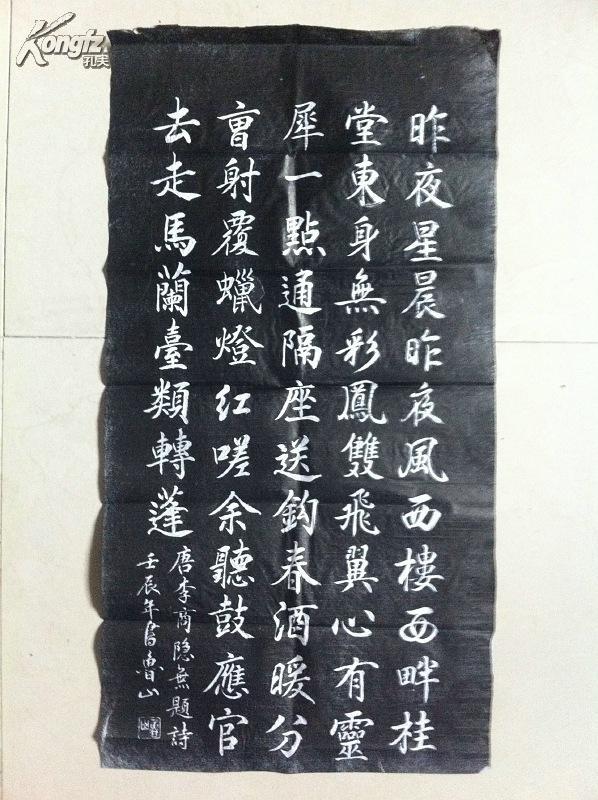 Kongfz
孔夫
昨夜星晨昨夜風西樓西畔桂
堂東身無彩鳳雙飛翼心有靈
犀一點通隔座送鈎春酒暖分
曺射覆蠟燈红嗟余聽鼓應官
去走馬蘭臺類轉蓬
唐李商隐無題詩
壬辰年書魯山